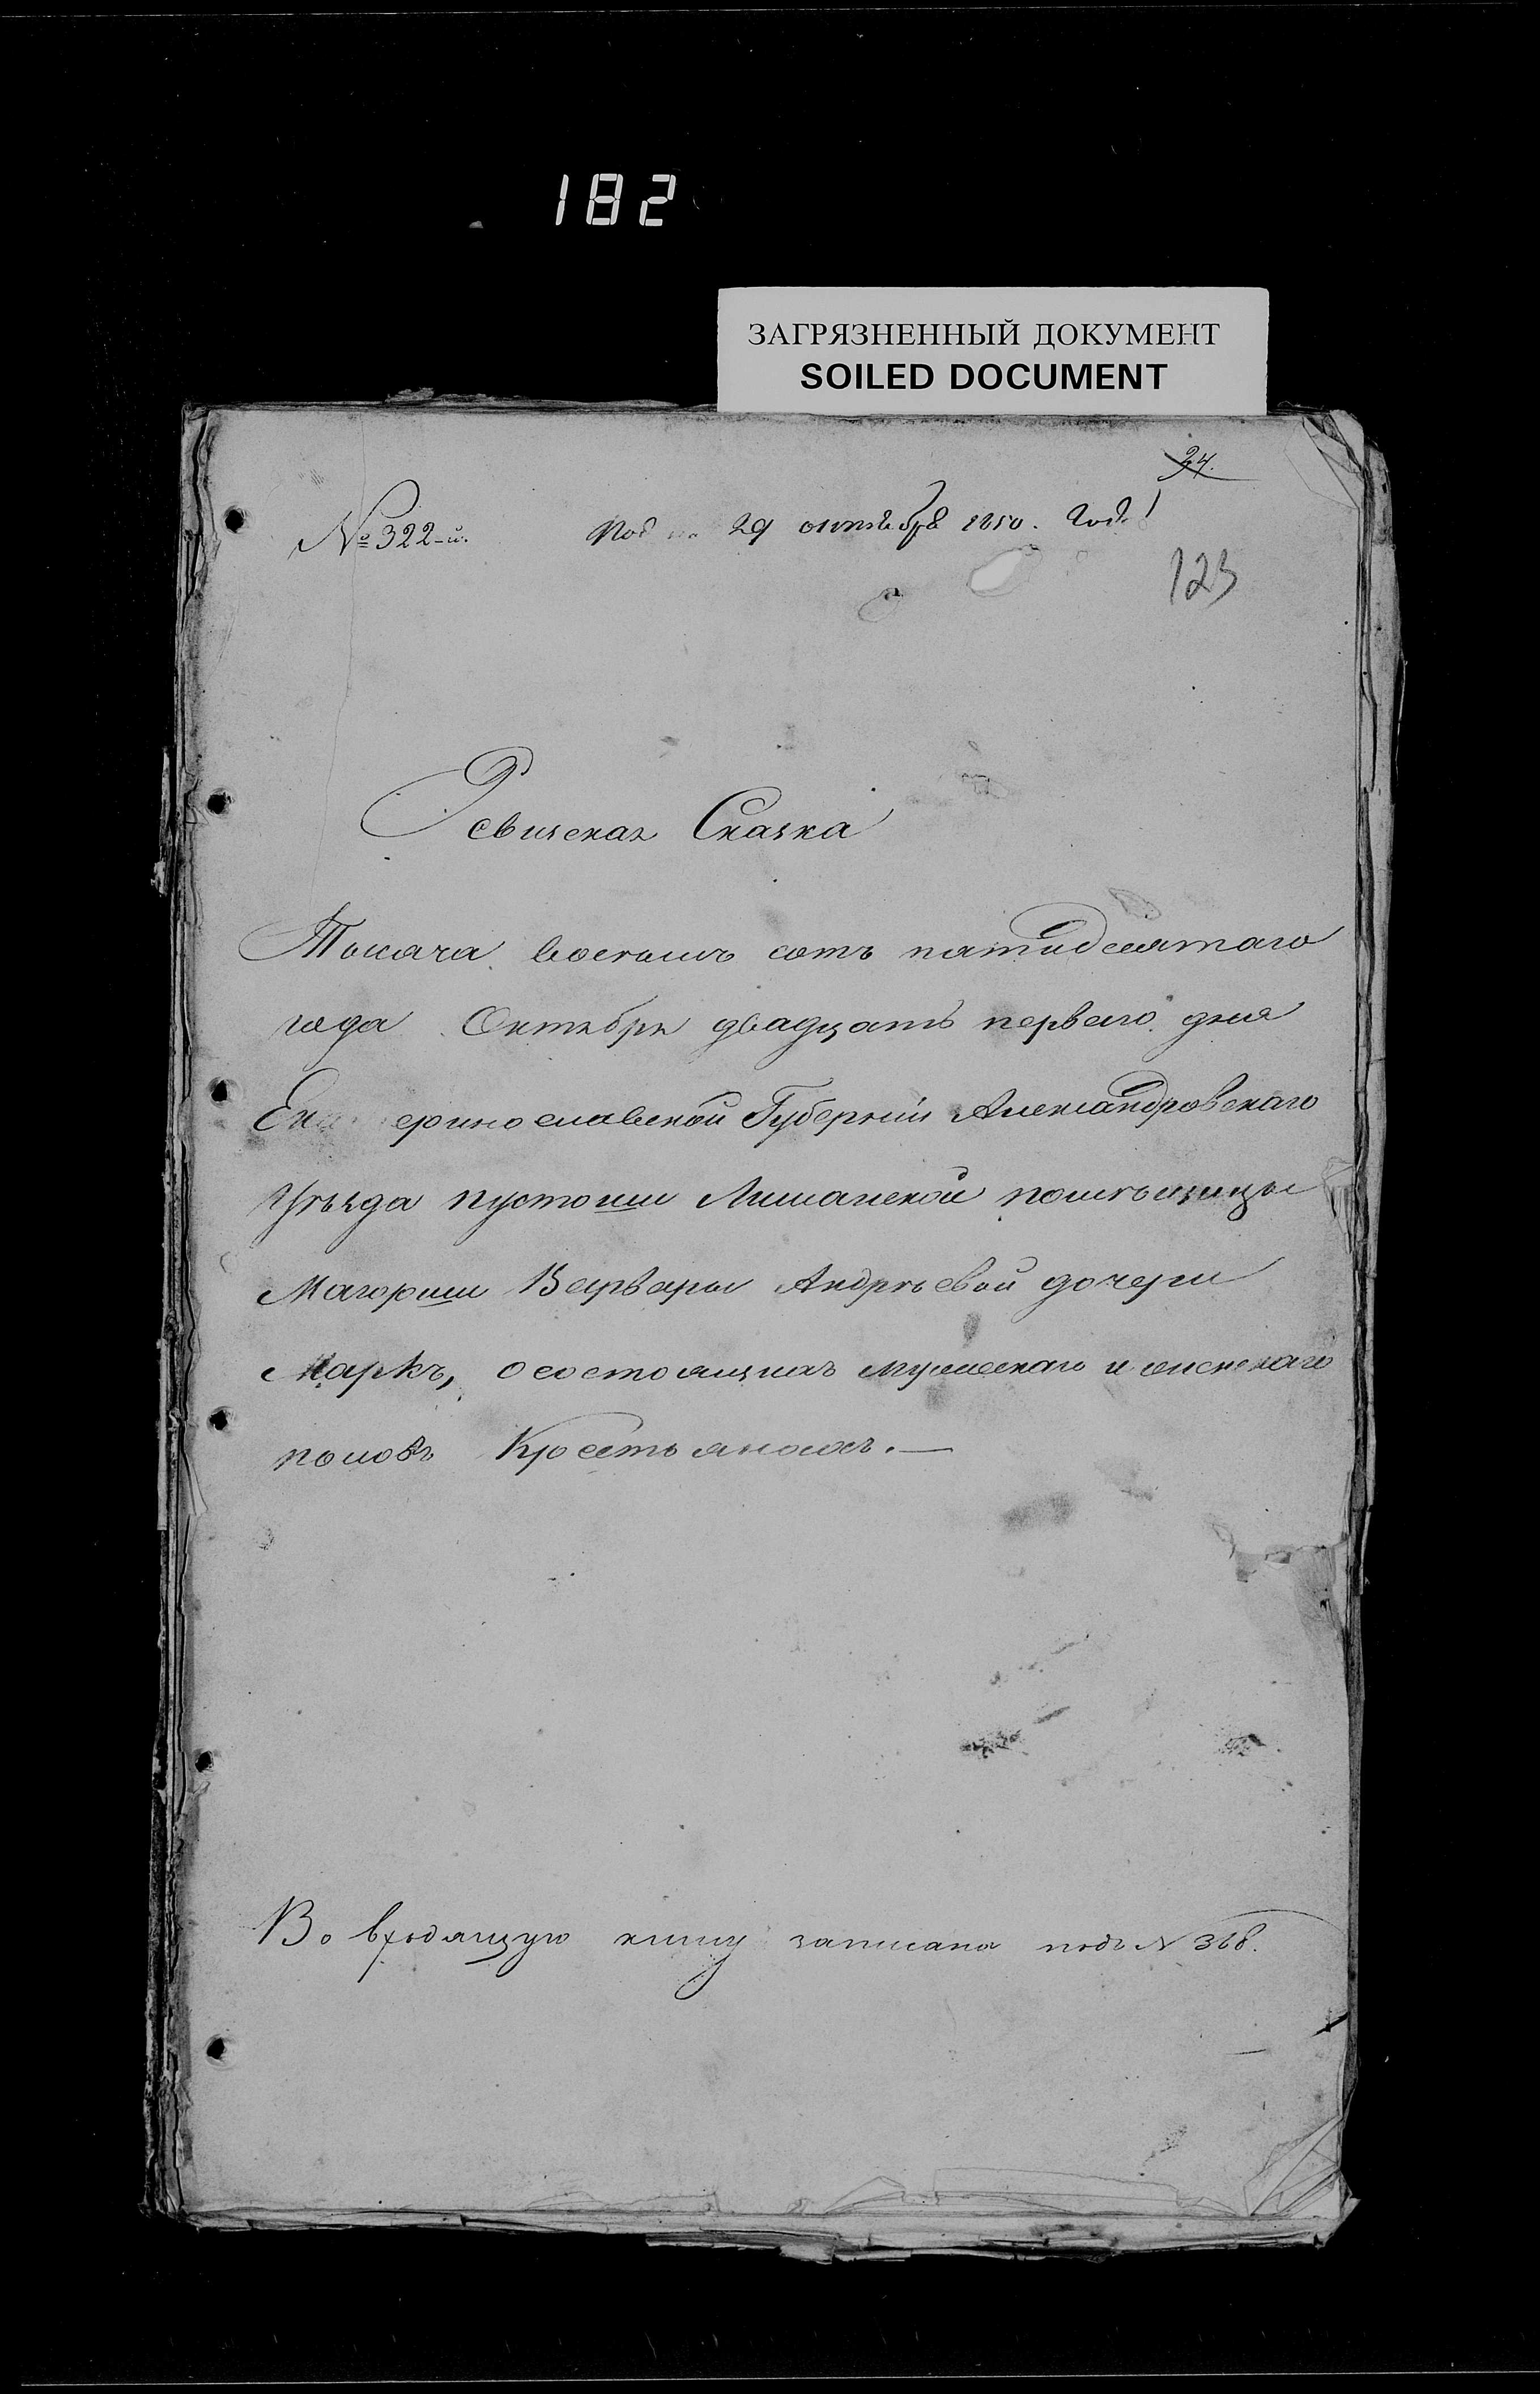 182
ЗАГРЯЗНЕННЫЙ ДОКУМЕНТ
SOILED DOCUMENT
24.
№ 322-й. 29 октября 1850. Года
123
Ревизская Сказка
Тысяча восемь сотъ пятидесятаго
года Октября двадцать перваго дня
Екатеринославской Губерніи Александровскаго
Уѣзда пустоши Лиманской помѣщицы
Маіорши Варвары Андрѣевой дочери
Маркъ, о состоящихъ мужескаго и женскаго
половъ Крестьянахъ.—
Во входящую книгу записана подъ № 368.